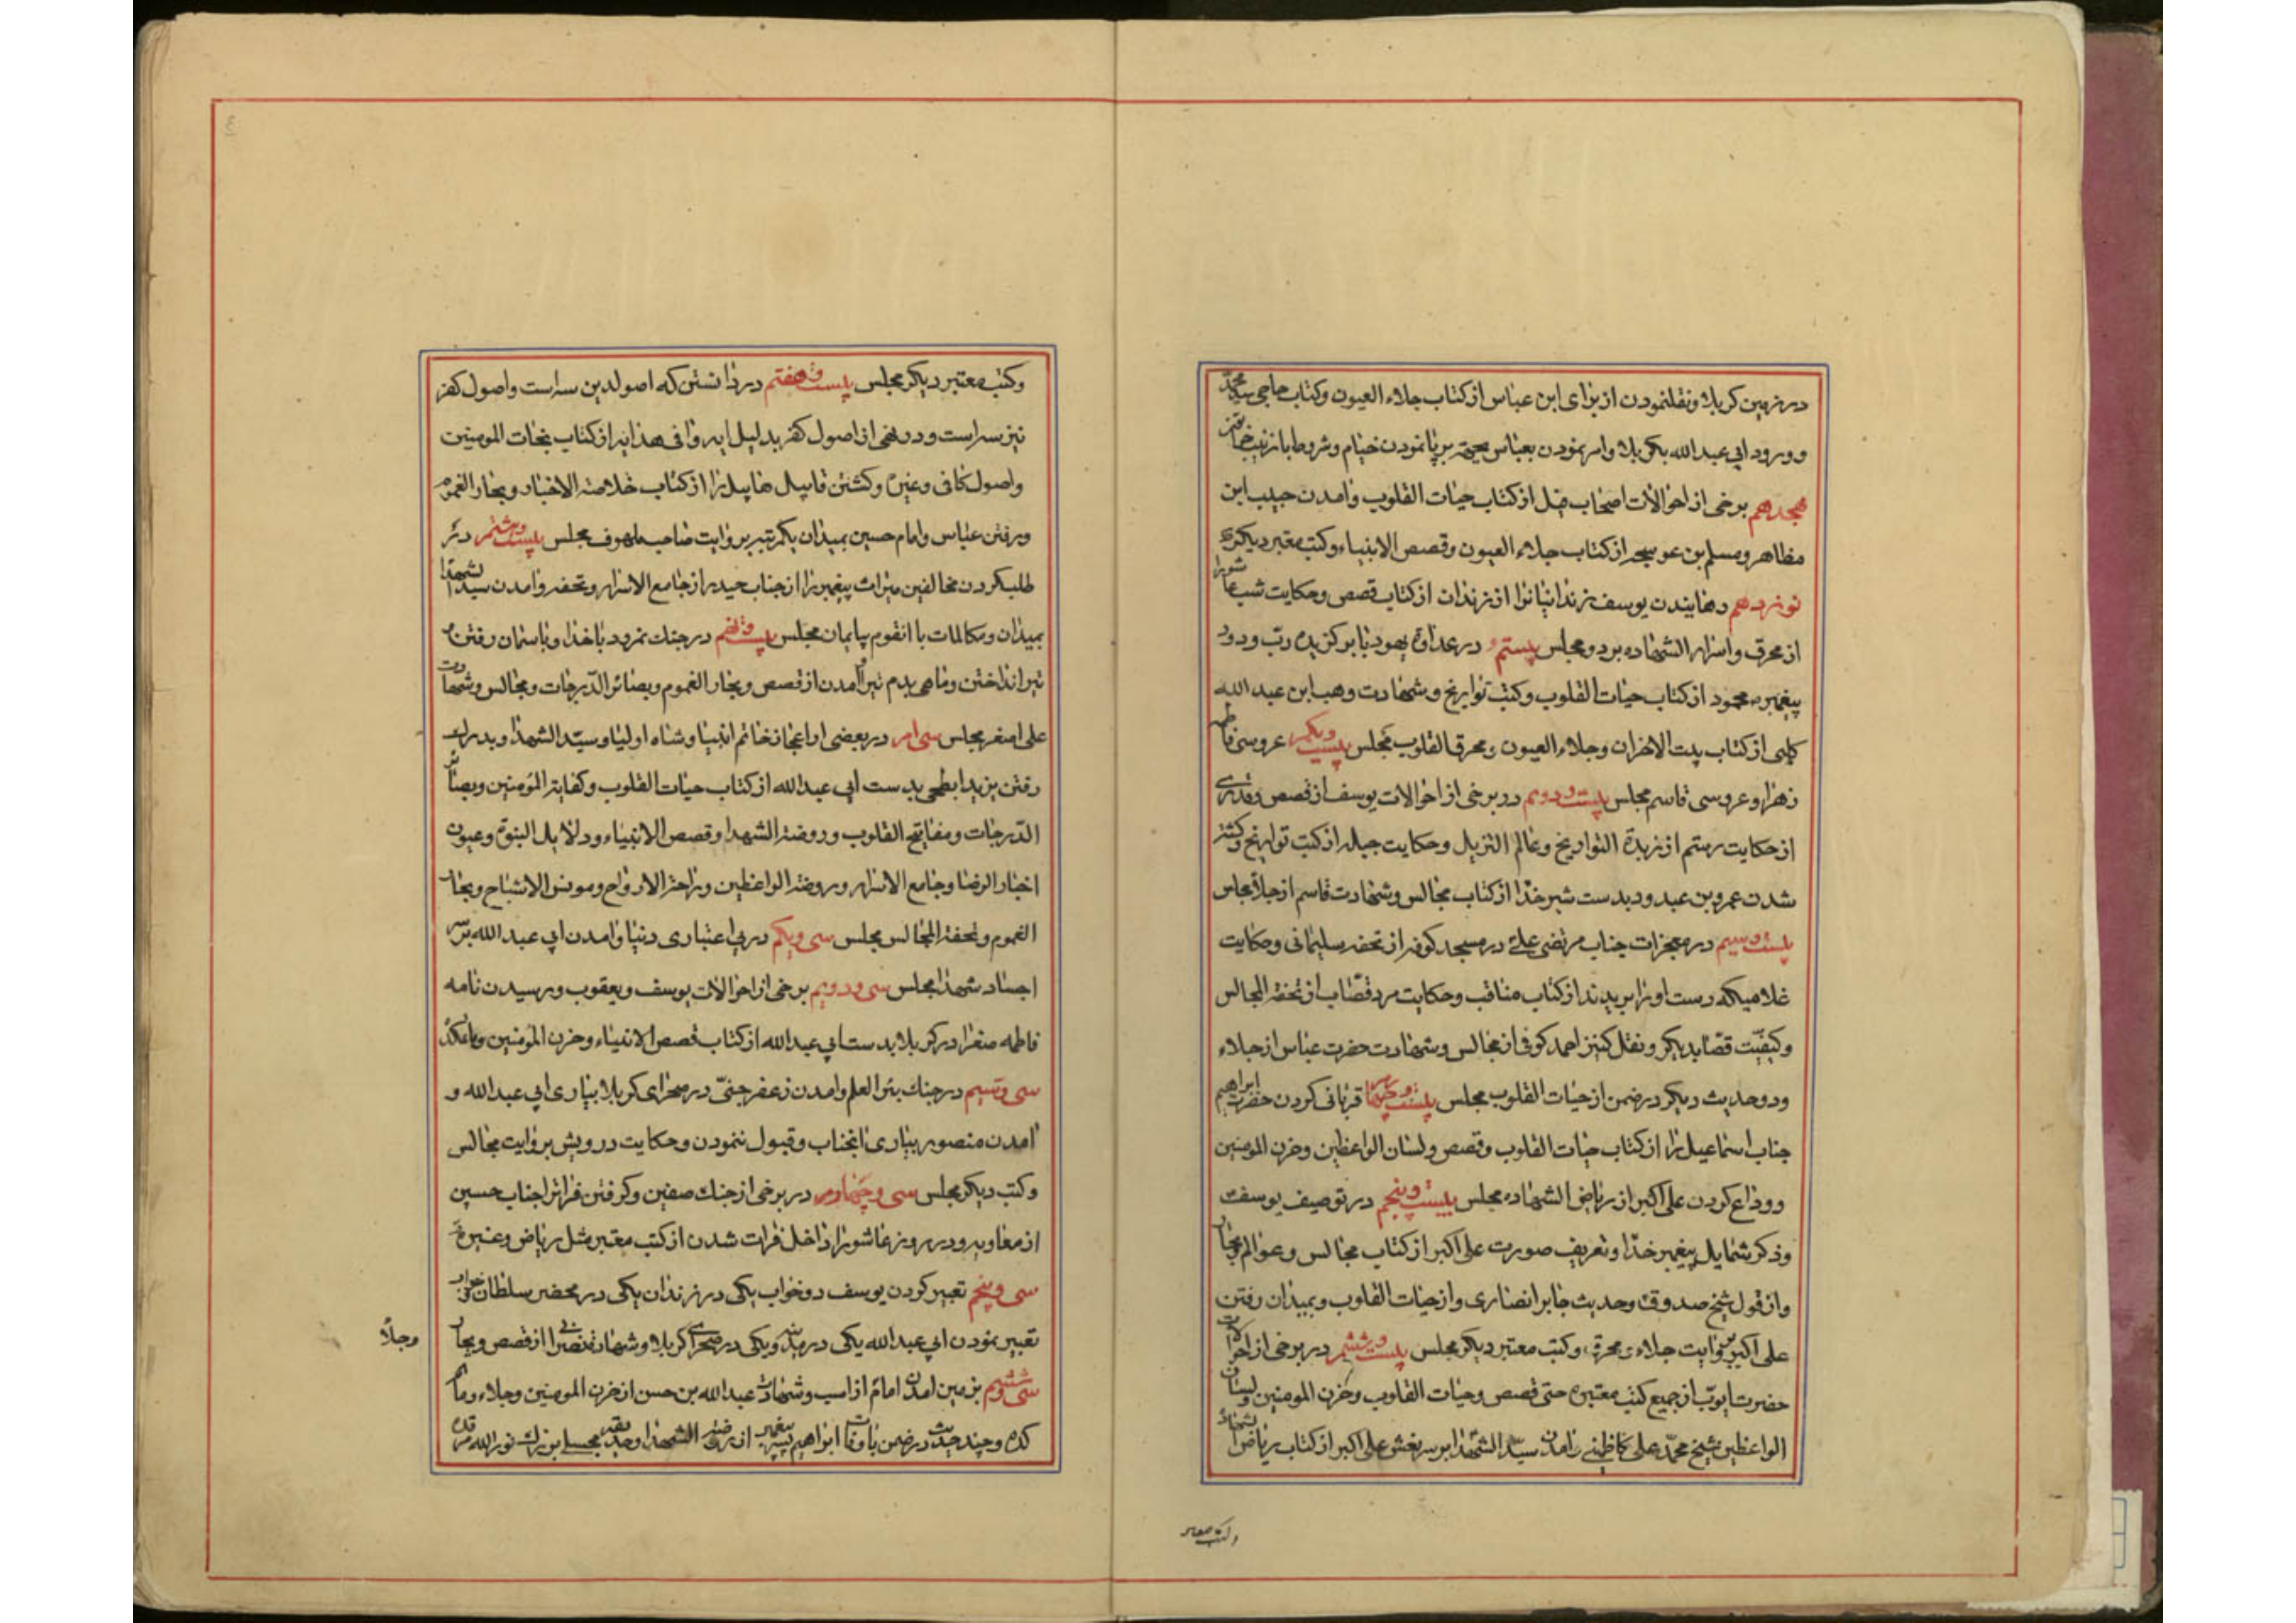 در زمین کربلا و نقلنمودن از برای ابن عباس از کتاب جلاء العیون و کتاب حاجی سید محمّد
و ورود ابی عبد الله بکربلا و امر نمودن بعباس بجهته برپا نمودن خیام و شروط با زینب خاتون
هجدهم برخی از احوالات اصحاب فیل از کتاب حیات القلوب و امدن حبیب ابن
مظاهر و مسلم بن عوسجه از کتاب جلاء العیون و قصص الانبیاء و کتب معتبر دیکری
نوزدهم رهایندن یوسف زندانیانرا از زندان از کتاب قصص و حکایت شب عاشورا
از محرق و اسرار الشهاده بردو مجلس بیستم در عداوة یهود با برکزیده ربّ ودود
پیغمبر محمود از کتاب حیات القلوب و کتب تواریخ و شهادت وهب ابن عبد الله
کلبی از کتاب بیت الاحزان و جلاء العیون و محرق القلوب مجلس بیست و یکم عروسی فاطمه
زهرا و عروسی قاسم مجلس بیست و دویم در برخی از احوالات یوسف از قصص و قدری
از حکایت رستم از زبدة التواریخ و عالم التنزیل و حکایت جبله از کتب تواریخ و کشته
شدن عمرو بن عبدود بدست شیر خدا از کتاب مجالس و شهادت قاسم از جلا مجلس
بیست و سیم در معجزات جناب مرتضی علی در مسجد کوفه از تحفه سلیمانی و حکایت
غلامیکه دست او را بریدند از کتاب مناقب و حکایت مرد قصّاب از تحفة المجالس
و کیفیّت قصّاب دیکر و نقل کنیز احمد کوفی از مجالس و شهادت حضرت عباس از جلاء
و دو حدیث دیکر در ضمن از حیات القلوب مجلس بیست و چهارم قربانی کردن حضرت ابراهیم
جناب اسماعیل را از کتاب حیات القلوب و قصص و لسان الواعظین و حزن المومنین
و وداع کردن علی اکبر از ریاض الشهاده مجلس بیست و پنجم در توصیف یوسف
و ذکر شمایل پیغمبر خدا و تعریف صورت علی اکبر از کتاب مجالس و عوالم و بحار
و از قول شیخ صدوق و حدیث جابر انصاری و از حیات القلوب و بمیدان رفتن
علی اکبر بروایت جلاء و محرق و کتب معتبر دیکر مجلس بیست و ششم در برخی از احوالات
حضرت ایوّب از جمیع کتب معتبره حتی قصص و حیات القلوب و حزن المومنین و لسان
الواعظین شیخ محمّد علی کاظمینی و امدن سیّد الشهدا بر سر نعش علی اکبر از کتاب ریاض الشهاده
و کتب معتبر
و کتب معتبر دیکر مجلس بیست و هفتم در دانستن که اصولدین سه است و اصول کفر
نیز سه است و در نفی از اصول کفر بدلیل ایه وافی هدایه از کتاب نجات المومنین
و اصول کافی و غیره و کشتن قابیل هابیل را از کتاب خلاصة الاخبار و بحار الغموم
و رفتن عباس و امام حسین بمیدان بیکمرتبه بروایت صاحب ملهوف مجلس بیست و هشتم در
طلبکردن مخالفین میراث پیغمبر را از جناب حیدر از جامع الاسرار و تحفه و امدن سید الشهدا
بمیدان و مکالمات با انقوم بیایمان مجلس بیست و نهم در جنك نمرود با خدا و باسمان رفتن و
تیر انداختن و ماهی بدم تیر آمدن از قصص و بحار الغموم و بصائر الدّرجات و مجالس و شهادت
علی اصغر مجلس سی ام در بعضی از اعجاز خاتم انبیا و شاه اولیا و سیّد الشهدا و بدرك
رفتن یزید ابطحی بدست ابی عبد الله از کتاب حیات القلوب و کفایة المؤمنین و بصائر
الدّرجات و مفاتیح القلوب و روضة الشهدا و قصص الانبیاء و دلایل النبوّة و عیون
اخبار الرضا و جامع الاسرار و روضة الواعظین و راحة الارواح و مونس الاشباح و بحار
الغموم و تحفة المجالس مجلس سی و یکم در بی اعتباری دنیا و امدن ابی عبد الله بر سر
اجساد شهدا مجلس سی و دویم برخی از احوالات یوسف و یعقوب و رسیدن نامه
فاطمه صغرا در کربلا بدست ابی عبد الله از کتاب قصص الانبیاء و حزن المؤمنین و ماتمکده
سی و سیم در جنك بئر العلم و امدن زعفر جنّی در صحرای کربلا بیاری ابی عبد الله و
امدن منصور بیاری انجناب و قبول ننمودن و حکایت درویش بروایت مجالس
و کتب دیکر مجلس سی و چهارم در برخی از جنك صفین و کرفتن فرات را جناب حسین
از معاویه و در روز عاشورا داخل فرات شدن از کتب معتبر مثل ریاض و غیره
سی و پنجم تعبیر کردن یوسف دو خواب یکی در زندان یکی در محضر سلطان
تعبیر نمودن ابی عبد الله یکی در مدینه و یکی در صحرای کربلا و شهادت از قصص و بحار
وجلاء
سی و ششم بزمین امدن امام از اسب و شهادت عبد الله بن حسن از حزن المومنین و جلاء و ماتم
کده و چند حدیث در ضمن با وفات ابراهیم پسر پیغمبر از روضة الشهدا و مجلسی ابن نور الله مرقده